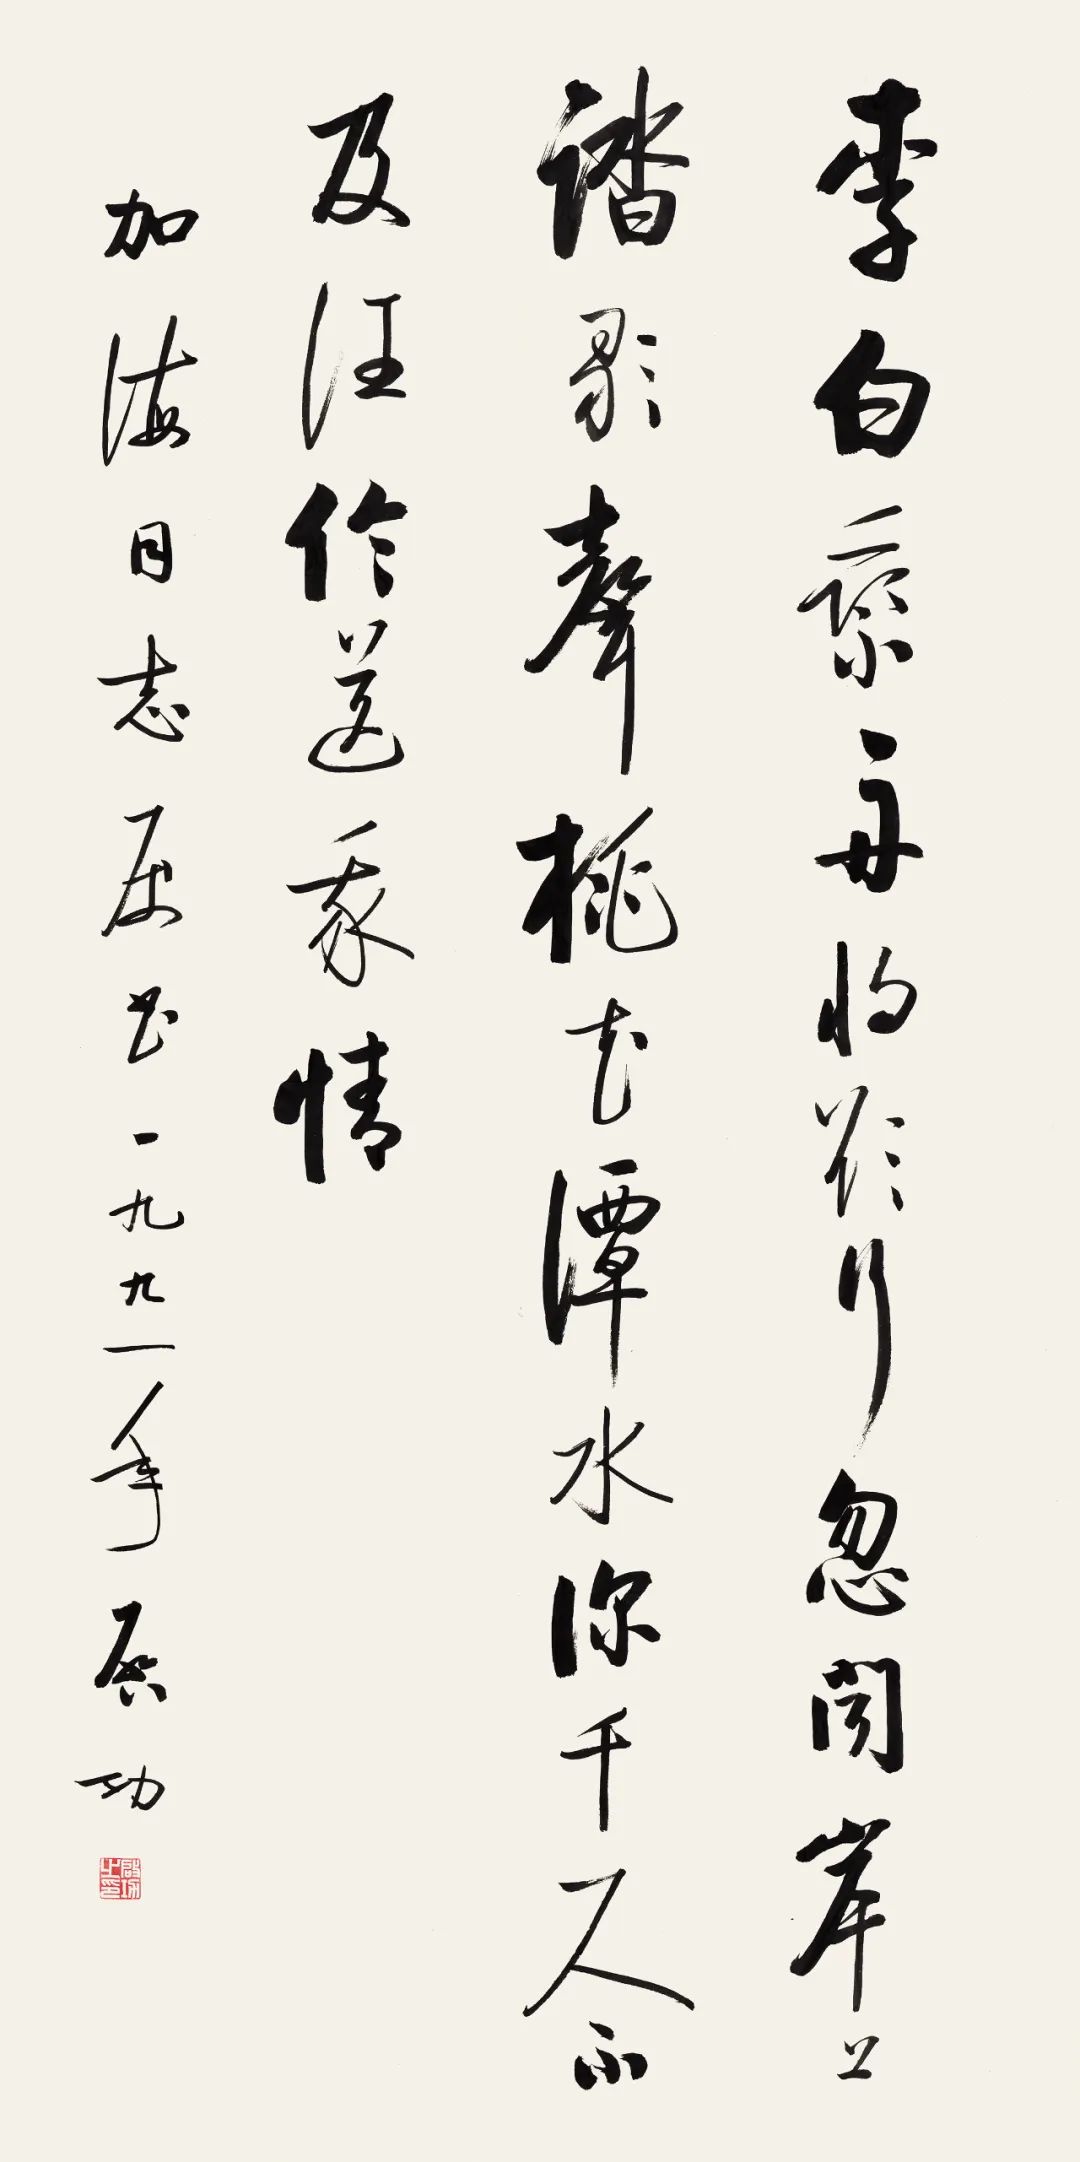 李白乘舟將欲行忽聞岸上
踏歌聲桃花潭水深千尺不
及汪倫送我情
加海同志屬書一九九一年 启功
啟功之印